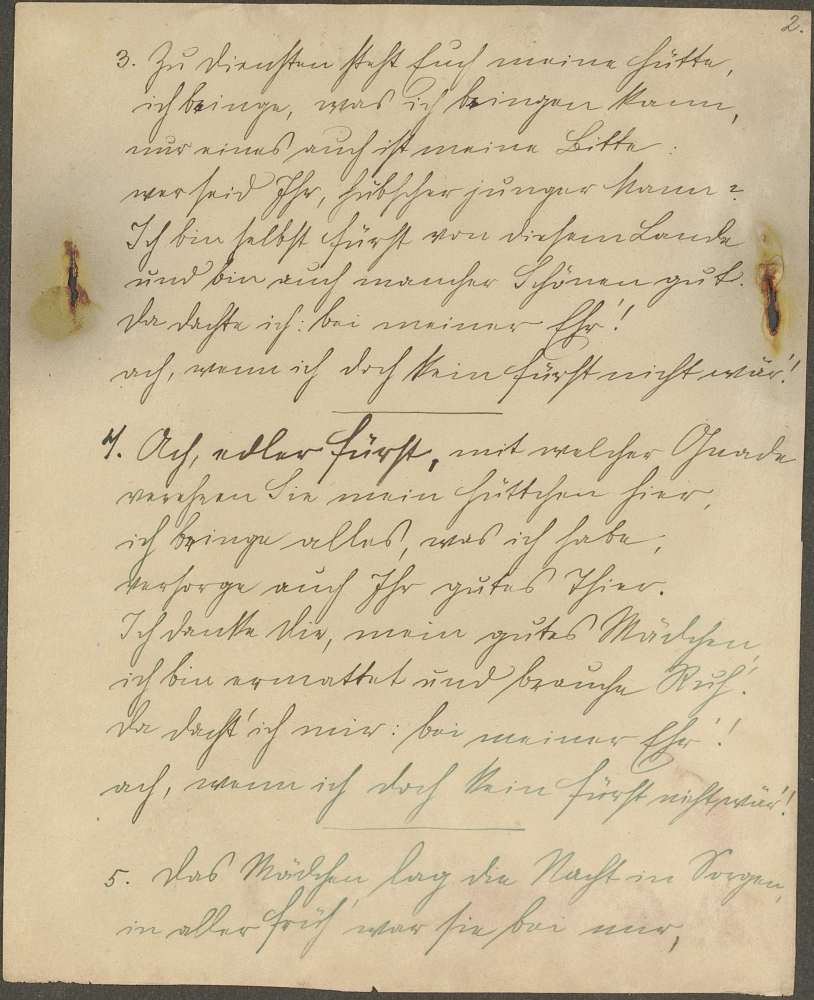 2.
3. Zu Diensten steht Euch meine Hütte,
ich bringe, was ich bringen kann,
nur eines auch ist meine Bitte:
wer seid Ihr, hübscher junger Mann?
Ich bin selbst Fürst von diesem Lande
und bin auch mancher Schönen gut.
Da dachte ich: bei meiner Ehr'!
ach, wenn ich doch kein Fürst nicht wär'!
4. Ach, edler Fürst, mit welcher Gnade
verehren Sie mein Hüttchen hier,
ich bringe alles, was ich habe,
versorge auch Ihr gutes Thier.
Ich danke Dir, mein gutes Mädchen,
ich bin ermattet und brauche Ruh'.
Da dacht' ich mir: bei meiner Ehr'!
ach, wenn ich doch kein Fürst nicht wär'!
5. Das Mädchen lag die Nacht in Sorgen,
in aller Früh' war sie bei mir,